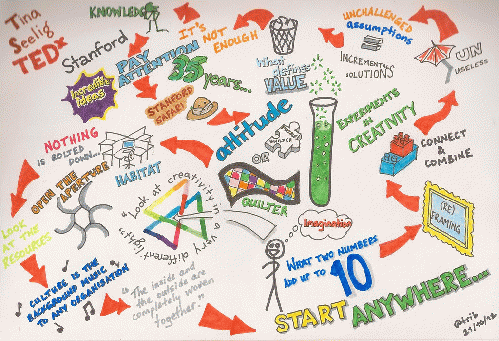 Tina
Seelig
TEDx
Stanford
KNOWLEDGE
IT'S
NOT
ENOUGH
UNCHALLENGED
assumptions
INCREMENTAL
SOLUTIONS
UN
USELESS
PAY
ATTENTION
35
years...
What defines
VALUE
Incredible
Ideas
STANFORD
SAFARI
attitude
PUZZLER
OR
QUILTER
EXPERIMENTS
in
CREATIVITY
CONNECT &
COMBINE
NOTHING
IS BOLTED
DOWN...
HABITAT
OPEN THE
APERTURE
"Look at creativity in a very different light"
LOOK
AT THE
RESOURCES
CULTURE IS THE
BACKGROUND MUSIC
TO ANY ORGANISATION
"The inside and
the outside are
completely woven
together."
Imagination
(RE)
FRAMING
WHAT TWO NUMBERS
ADD UP TO
10
START ANYWHERE...